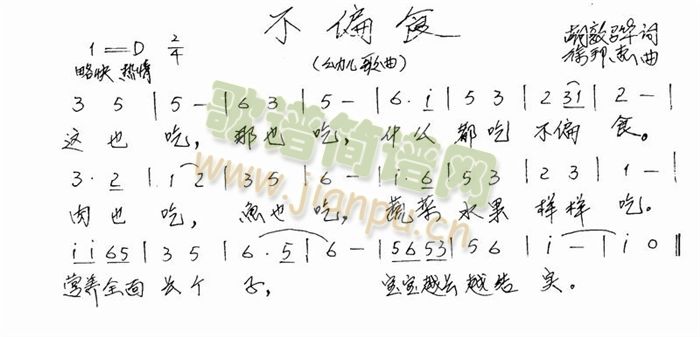 不偏食
(幼儿歌曲)
1=D 2/4
略快 热情
词
曲
3 5 | 5 - | 6 3 | 5 - | 6. i | 5 3 | 2 31 | 2 - |
这也吃，那也吃，什么都吃不偏食。
3. 2 | 1 2 | 3 5 | 6 - | i. 6 | 5 3 | 2 3 | 1 - |
肉也吃，鱼也吃，蔬菜水果样样吃。
i i 6 5 | 3 5 | 6. 5 | 6 - | 56 53 | 5 6 | i - | i 0 ‖
营养全面长个子，宝宝越长越结实。
歌谱简谱网
www.jianpu.cn